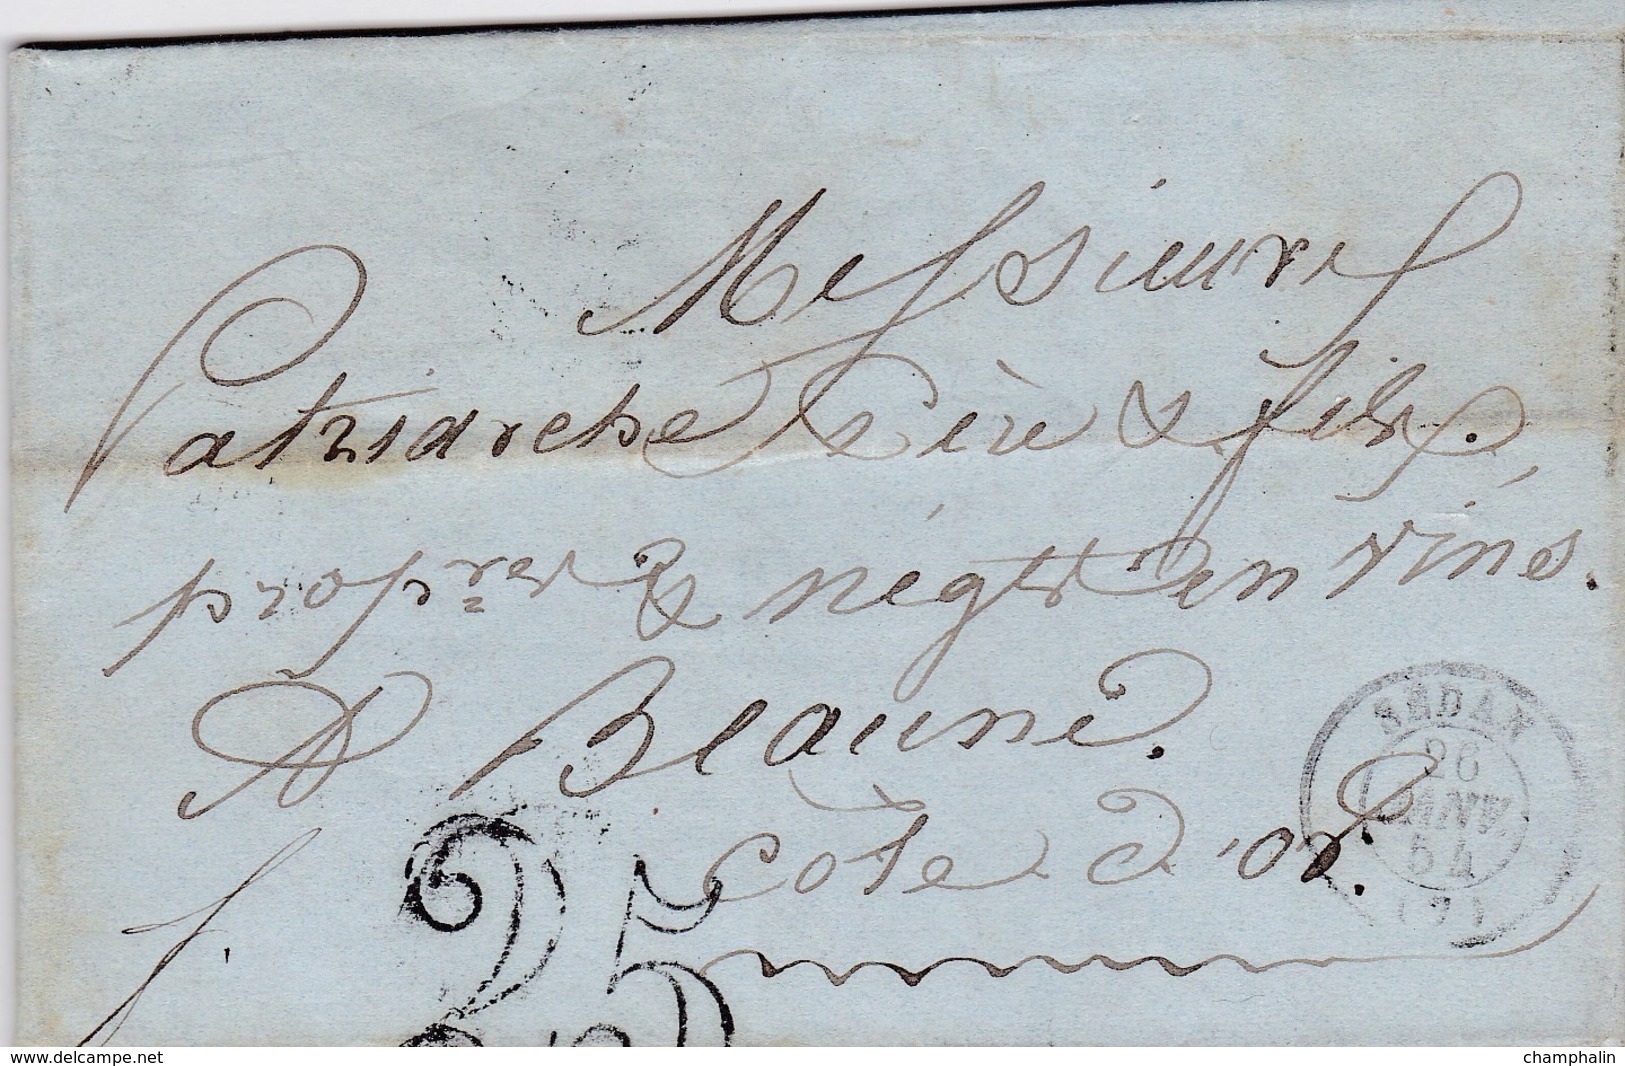 Messieurs
Patriarche Père & fils.
propres & négts en vins.
A Beaune.
Côte d'or.
f.
SEDAN
26
JANV.
54
(7)
25
www.delcampe.net
champhalin